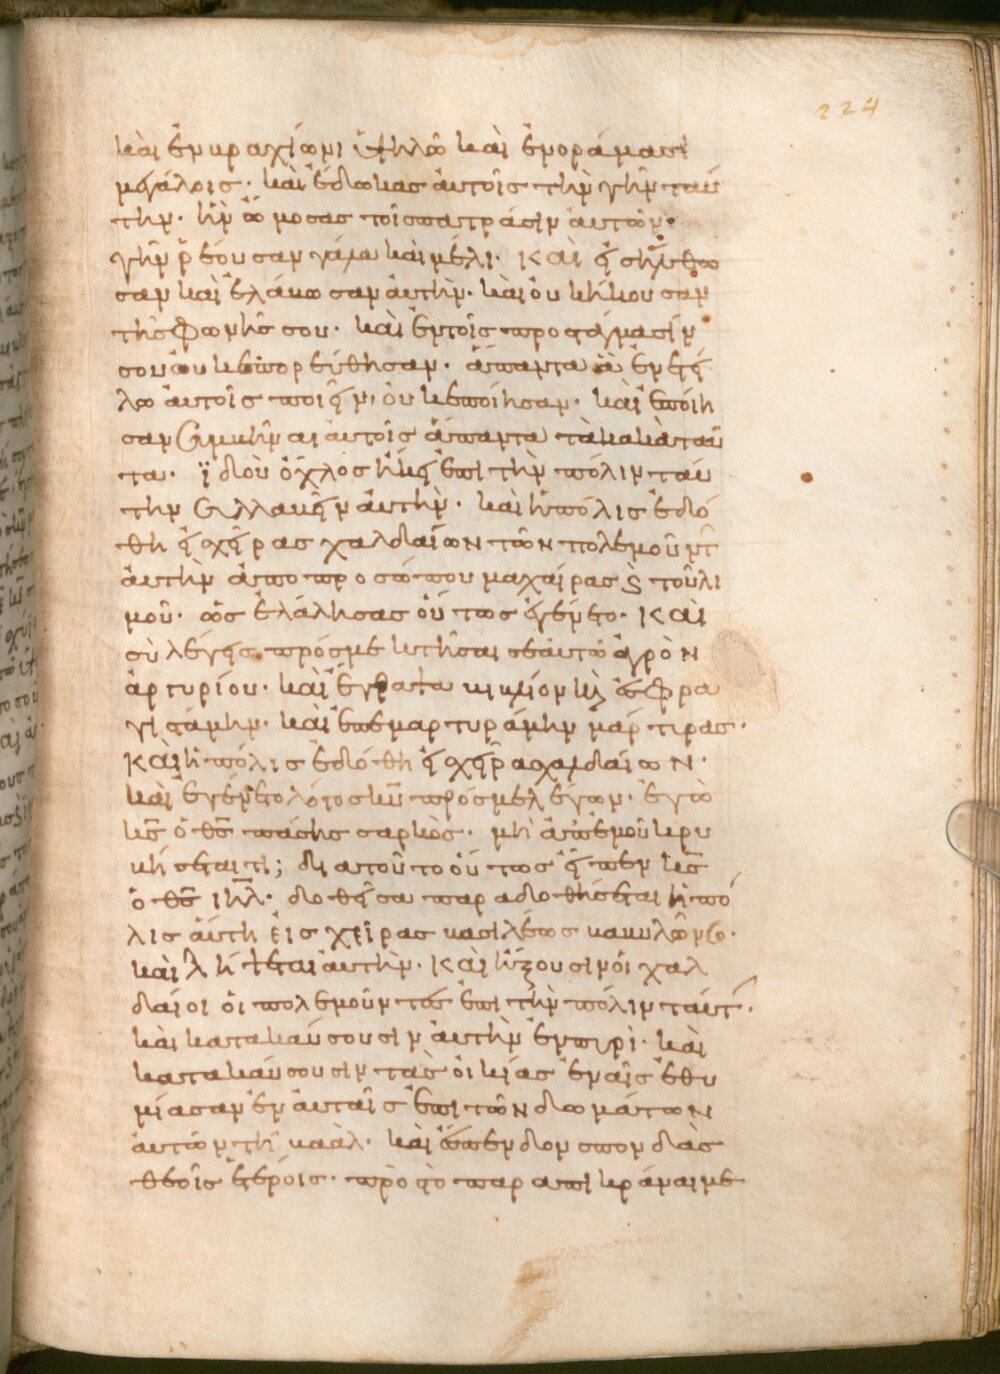 224
καὶ ἐν βραχίονι ὑψηλῶ καὶ ἐν οράμασι
μεγάλοις· καὶ ἔδωκας αὐτοῖς τὴν γῆν ταύ
την· ἣν ὤμοσας τοῖς πατράσιν αὐτῶν·
γῆν ῥέουσαν γάλα καὶ μέλι· Καὶ εἰσήλθω
σαν καὶ ἐλάβωσαν αὐτὴν· καὶ οὐκ ἤκουσαν
τῆς φωνῆς σου· καὶ ἐν τοῖς προστάγμασίν
σου οὐκ ἐπορεύθησαν· ἅπαντα ἃ ἐνετεί
λω αὐτοῖς ποιεῖν, οὐκ ἐποίησαν· καὶ ἐποίη
σαν συμβῆναι αὐτοῖς ἅπαντα τὰ κακὰ ταῦ
τα· ϊδοὺ ὄχλος ἥκει ἐπι τὴν πόλιν ταύ
την συλλαβεῖν αὐτὴν· καὶ ἡ πόλις ἐδό
θη εἰς χεῖρας χαλδαίων τῶν πολεμούντ
αὐτὴν ἀπο προσώπου μαχαίρας ϗ τοῦ λι
μοῦ· ὡς ἐλάλησας οὕτως ἐγένετο· Καὶ
σὺ λέγεις πρός με κτῆσαι σεαυτῶ ἀγρὸν
ἀργυρίου· καὶ ἔγραψα βιβλίον ϗ ἐσφρα
γισάμην· καὶ ἐπεμαρτυράμην μάρτυρας·
Καὶ ἡ πόλις ἐδόθη εἰς χεῖρας χαλδαίων·
καὶ ἐγένετο λόγος κυ πρός με λέγων· ἐγὼ
κς ὁ θς πάσης σαρκὸς· μὴ ἀπ ἐμοῦ κρυ
βήσεταί τι; διατοῦτο οὕτως εἶπεν κς
ὁ θς ιηλ· δοθεῖσα παραδοθήσεται ἡ πό
λις αὕτη εἰς χεῖρας βασιλέως βαβυλῶνος·
καὶ λήψεται αὐτὴν· Καὶ ἥξουσιν οἱ χαλ
δαίοι οἱ πολεμοῦντες ἐπι τὴν πόλιν ταύτ·
καὶ κατακαύσουσιν αὐτὴν ἐν πυρὶ· καὶ
κατακαύσουσιν τὰς οἰκίας ἐν αἷς ἐθυ
μίασαν ἐν αὐταῖς ἐπι τῶν δωμάτων
αὐτῶν τῆ βαὰλ· καὶ ἔσπενδον σπονδὰς
θεοῖς ἑτέροις· πρὸς τὸ παραπικράναι με